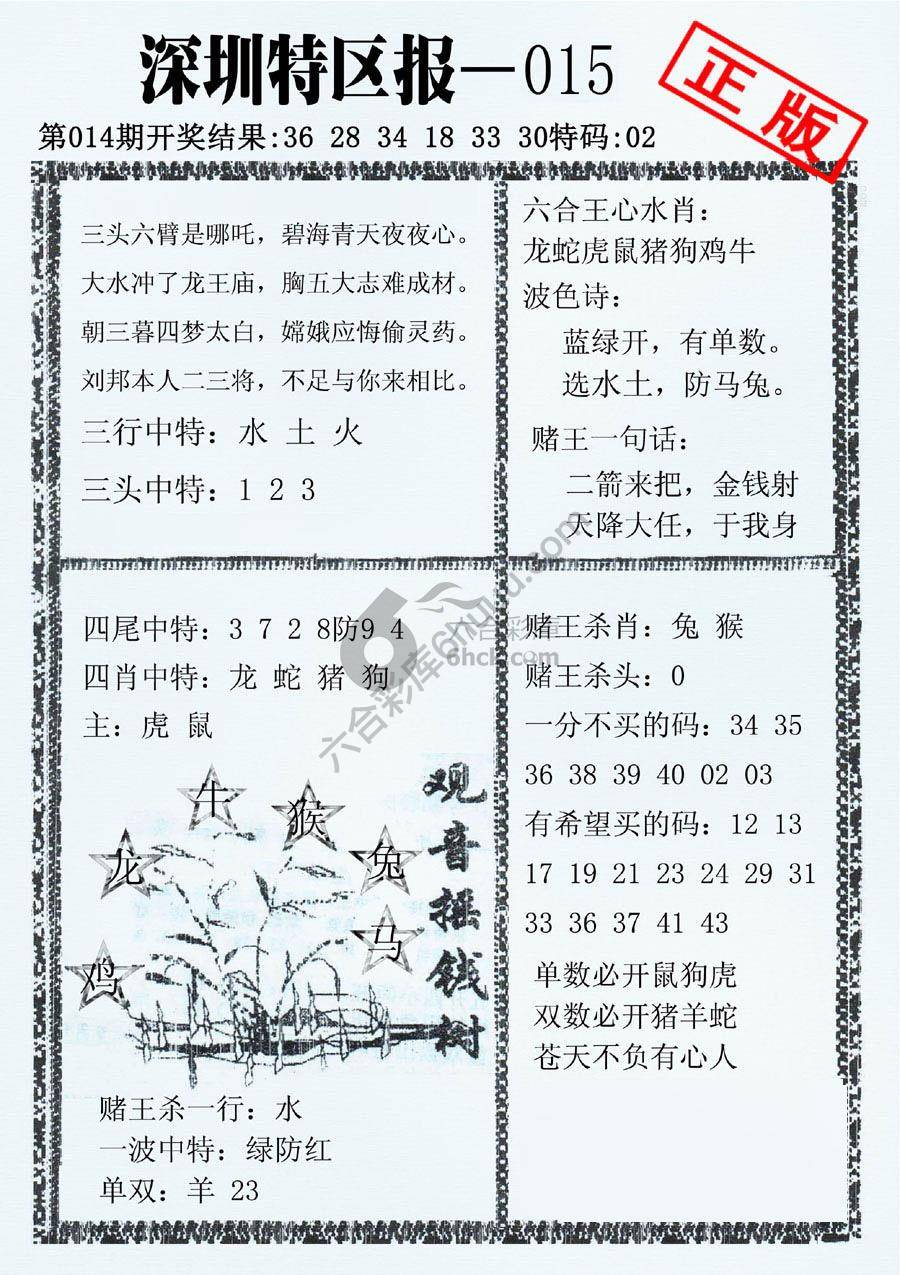 深圳特区报—015
正版
第014期开奖结果:36 28 34 18 33 30特码:02
三头六臂是哪吒，碧海青天夜夜心。
大水冲了龙王庙，胸五大志难成材。
朝三暮四梦太白，嫦娥应悔偷灵药。
刘邦本人二三将，不足与你来相比。
三行中特：水 土 火
三头中特：1 2 3
六合王心水肖：
龙蛇虎鼠猪狗鸡牛
波色诗：
蓝绿开，有单数。
选水土，防马兔。
赌王一句话：
二箭来把，金钱射
天降大任，于我身
四尾中特：3 7 2 8防9 4
四肖中特：龙 蛇 猪 狗
主：虎 鼠
牛
猴
龙
兔
马
鸡
观音摇钱树
赌王杀一行：水
一波中特：绿防红
单双：羊 23
赌王杀肖：兔 猴
赌王杀头：0
一分不买的码：34 35
36 38 39 40 02 03
有希望买的码：12 13
17 19 21 23 24 29 31
33 36 37 41 43
单数必开鼠狗虎
双数必开猪羊蛇
苍天不负有心人
六合彩库
6hck.com